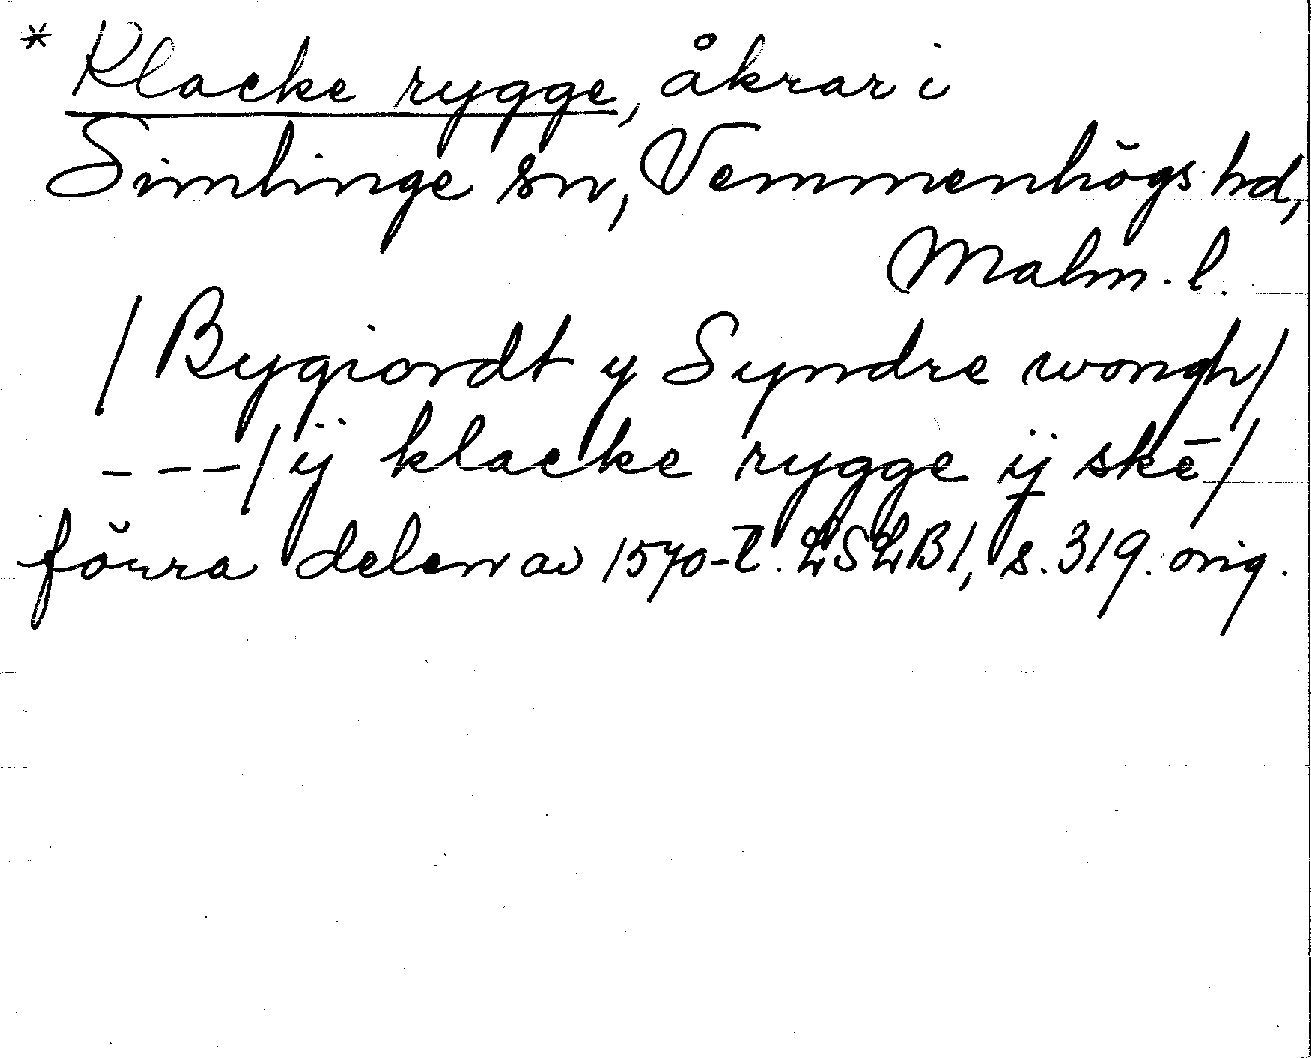 * Klacke rygge, åkrar i
Simlinge sn, Vemmenhögs hd,
Malm. l.
/ Bygiordt y Syndre wongh /
---/ ÿ klacke rygge ij skē /
förra delen av 1570-t. LSLB1, s. 319. orig.